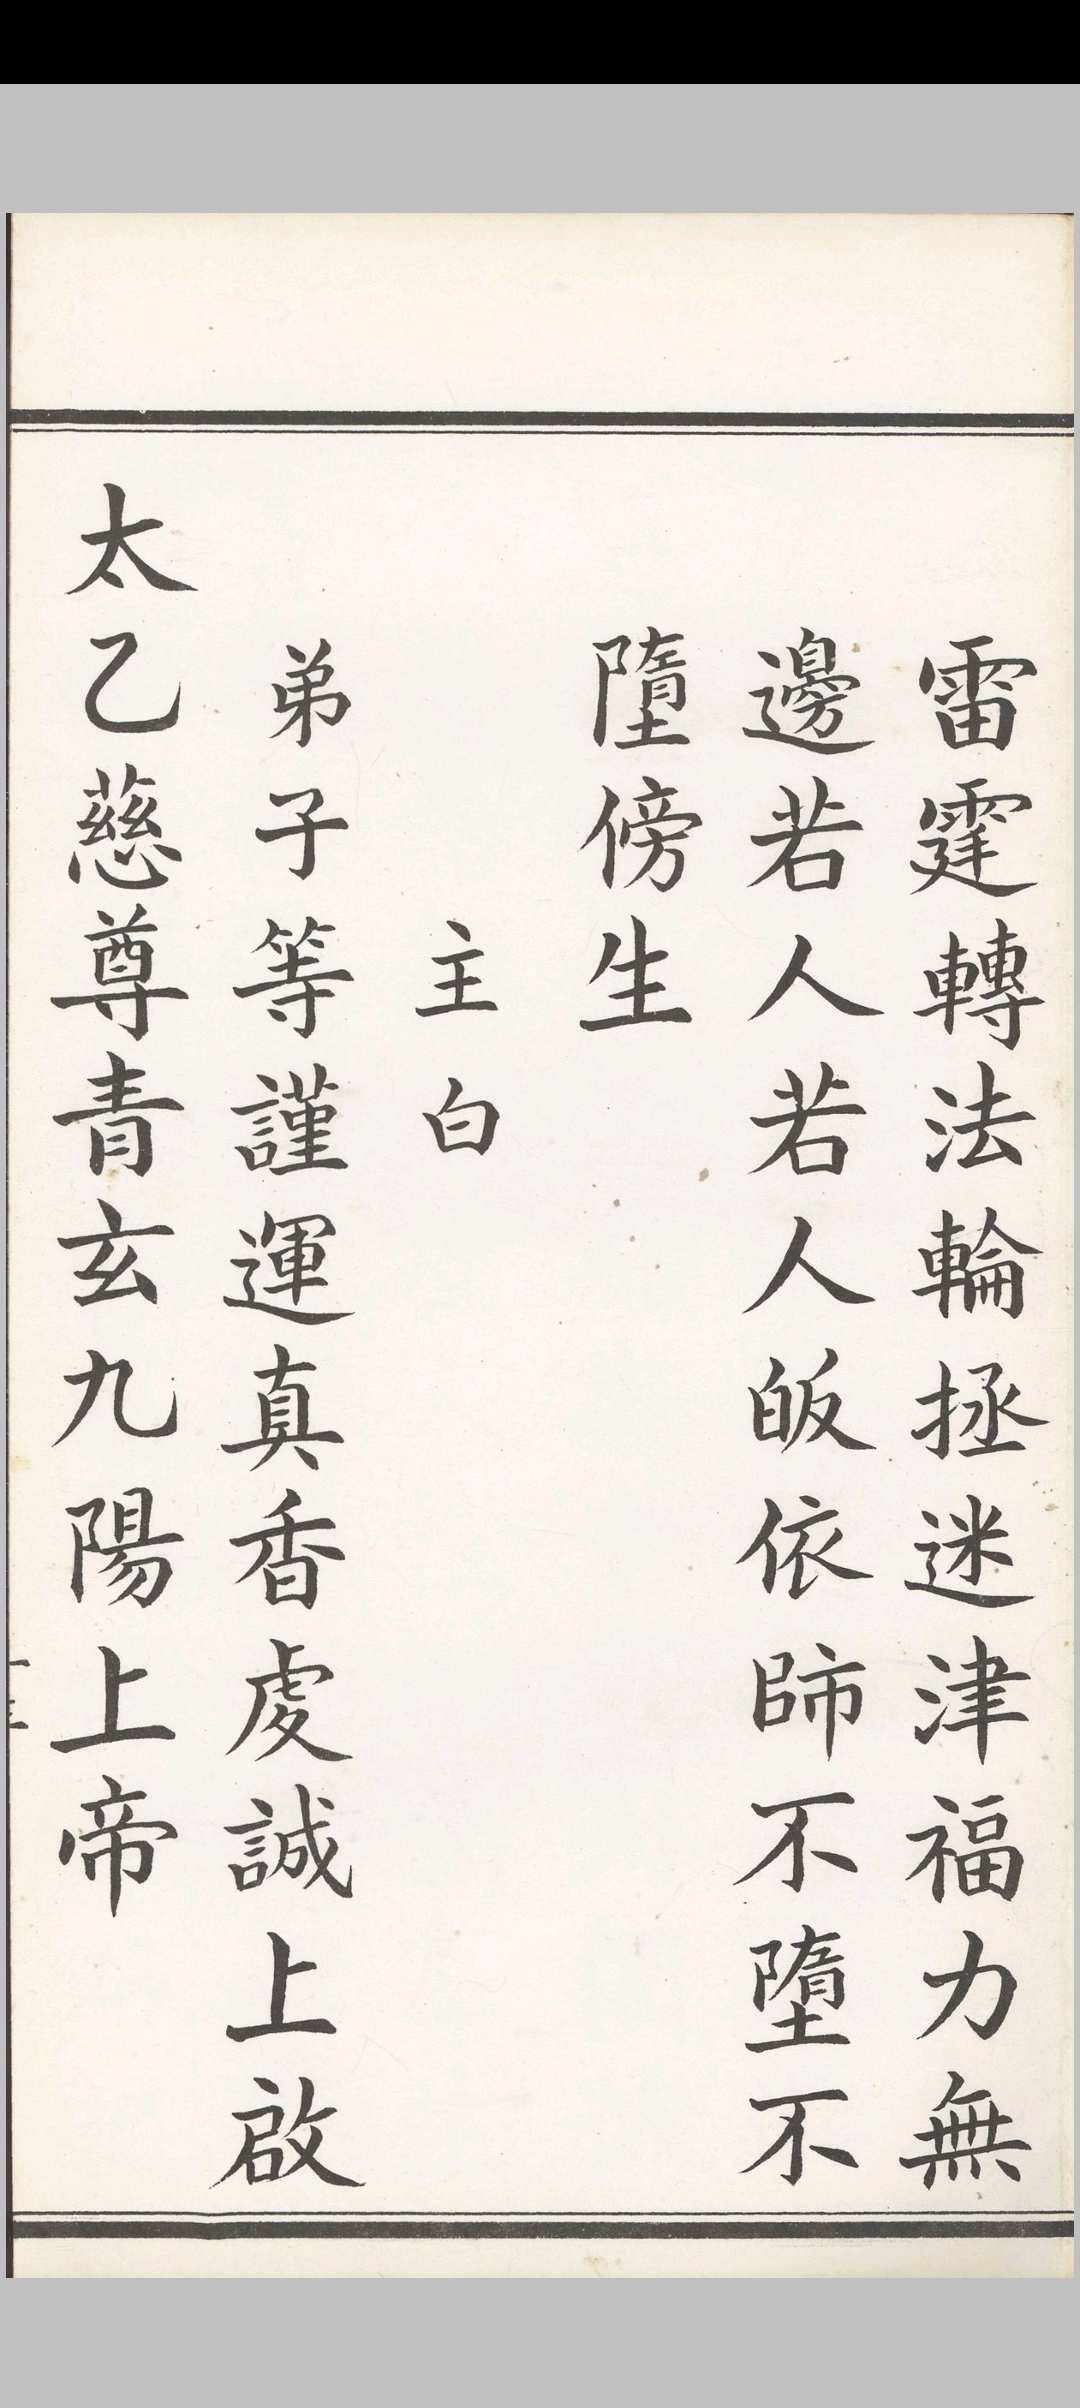 雷霆轉法輪拯迷津福力無
邊若人若人皈依師不墮不
墮傍生
主白
弟子等謹運真香虔誠上啟
太乙慈尊青玄九陽上帝